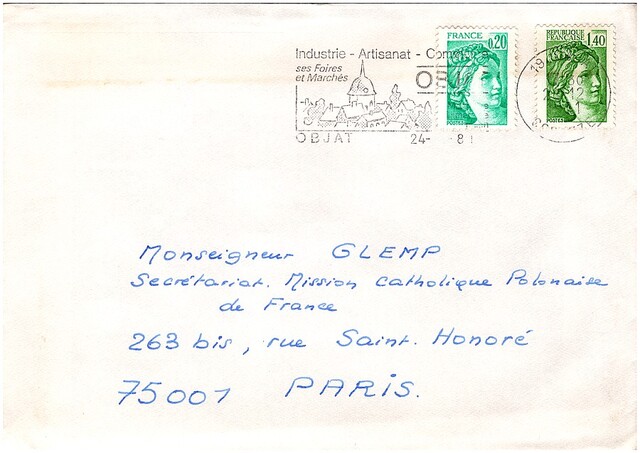 Industrie - Artisanat - Com
ses Foires
et Marchés
OBJAT 24- -81
FRANCE 0,20
REPUBLIQUE
FRANÇAISE 1,40
POSTES
POSTES
19
12
Monseigneur GLEMP
Secrétariat. Mission Catholique Polonaise
de France
263 bis, rue Saint. Honoré
75001 PARIS.